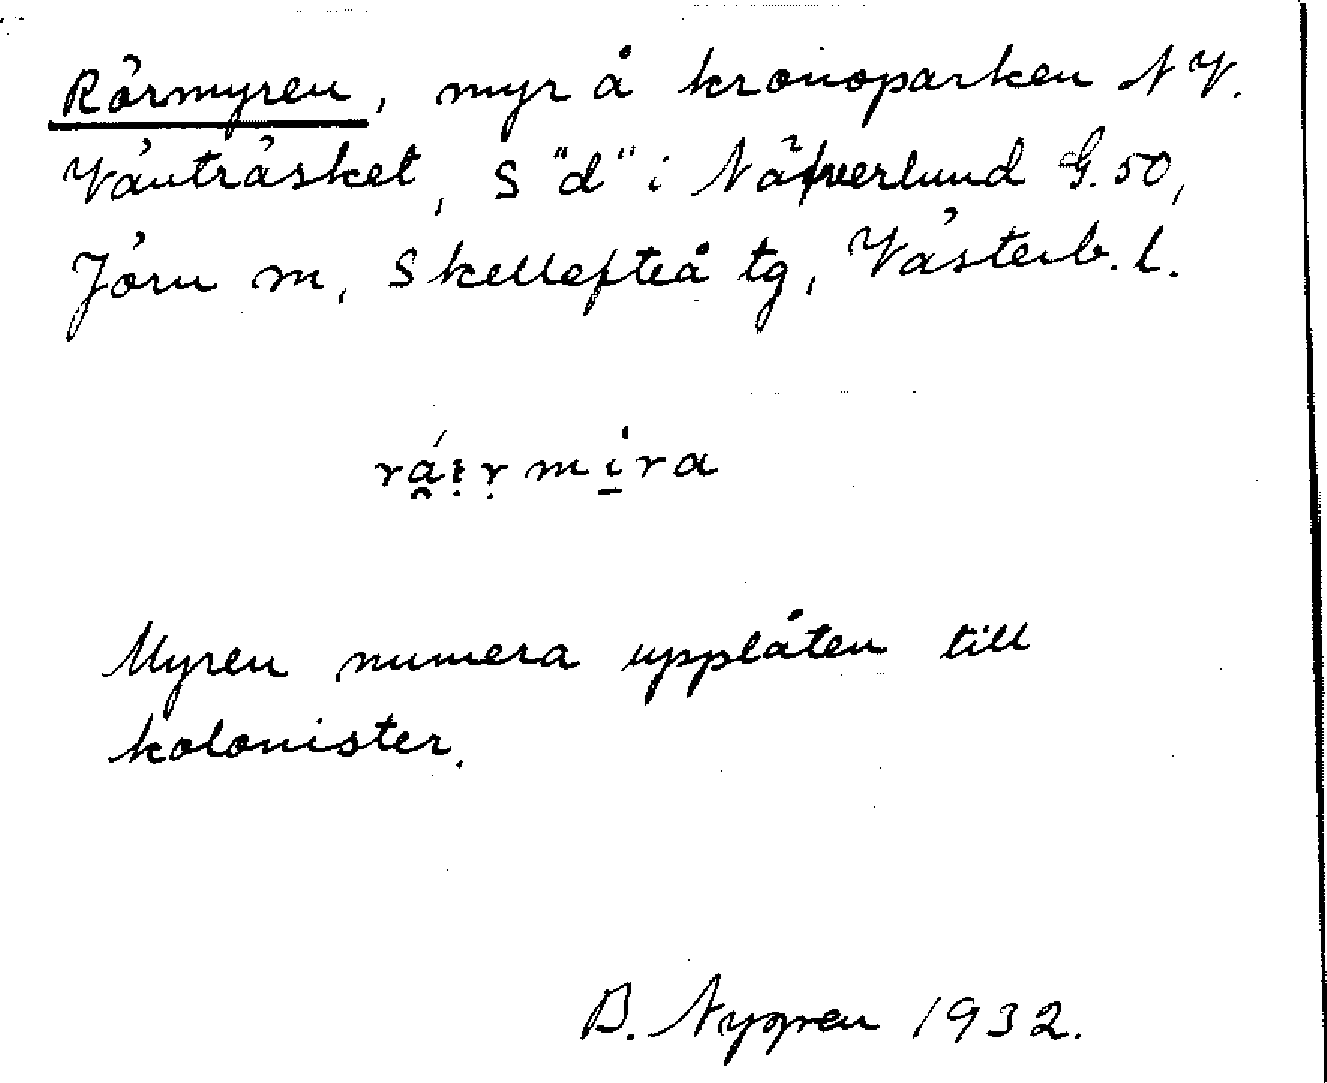 Rörmyren, myr å kronoparken N V.
Vänträsket, S "d" i Näfverlund G. 50,
Jörn m, Skellefteå tg, Västerb. l.
Myren numera upplåten till
kolonister.
B. Nygren 1932.